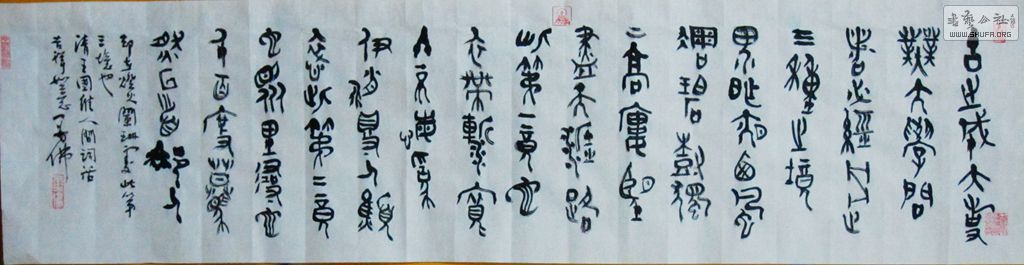 古之成大事
業大學問
者必經之
三種之境
界昨夜西風
凋碧樹獨
上高樓望
盡天涯路
此第一境也
衣帶漸寬
終不悔為
伊消得人憔
悴此第二境
也眾里尋他
千百度驀
然回首那人
却在燈火闌珊處此第
三境也
清王國維人間詞話
吉祥
書藝公社
WWW.SHUFA.ORG